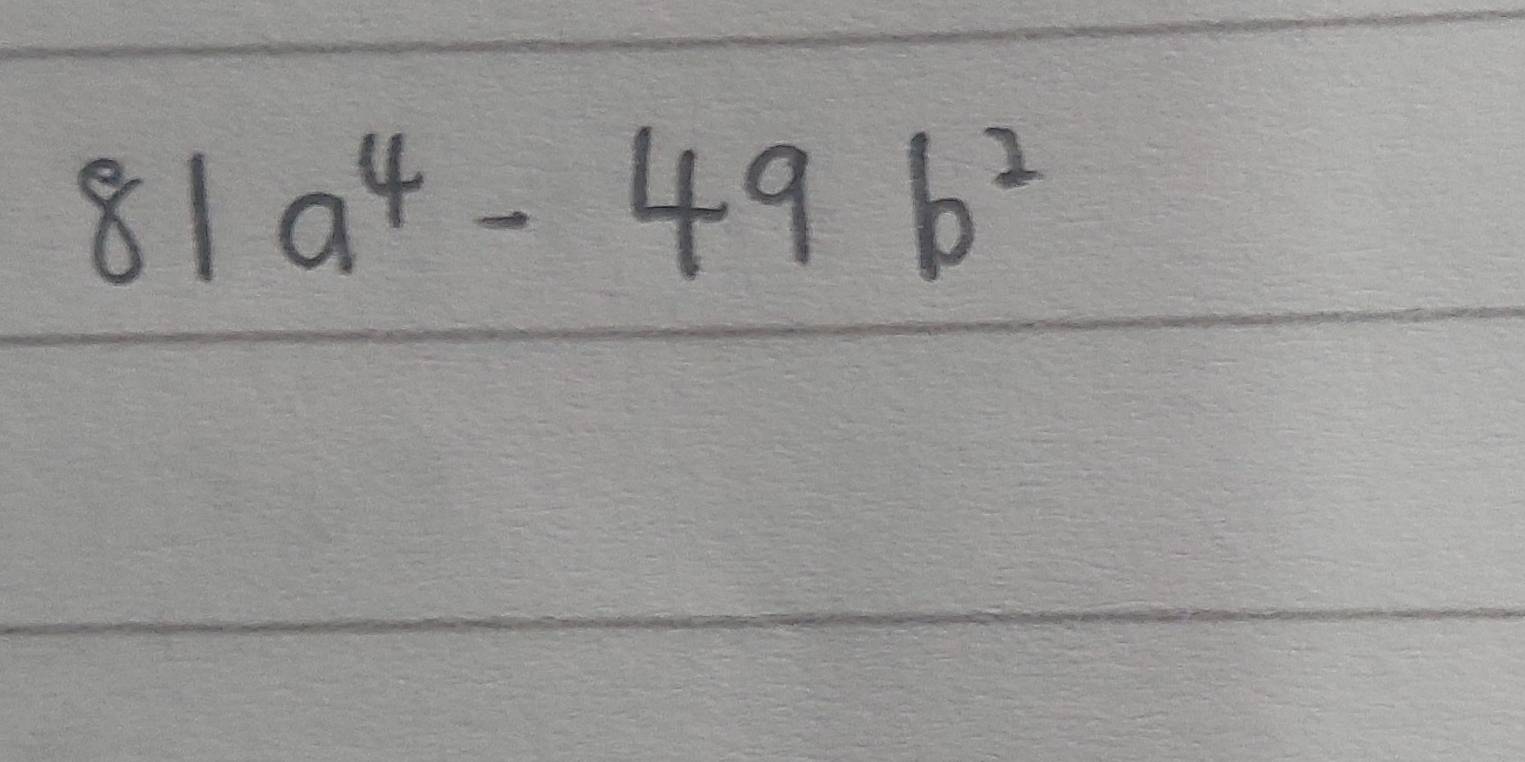 81a⁴ - 49b²